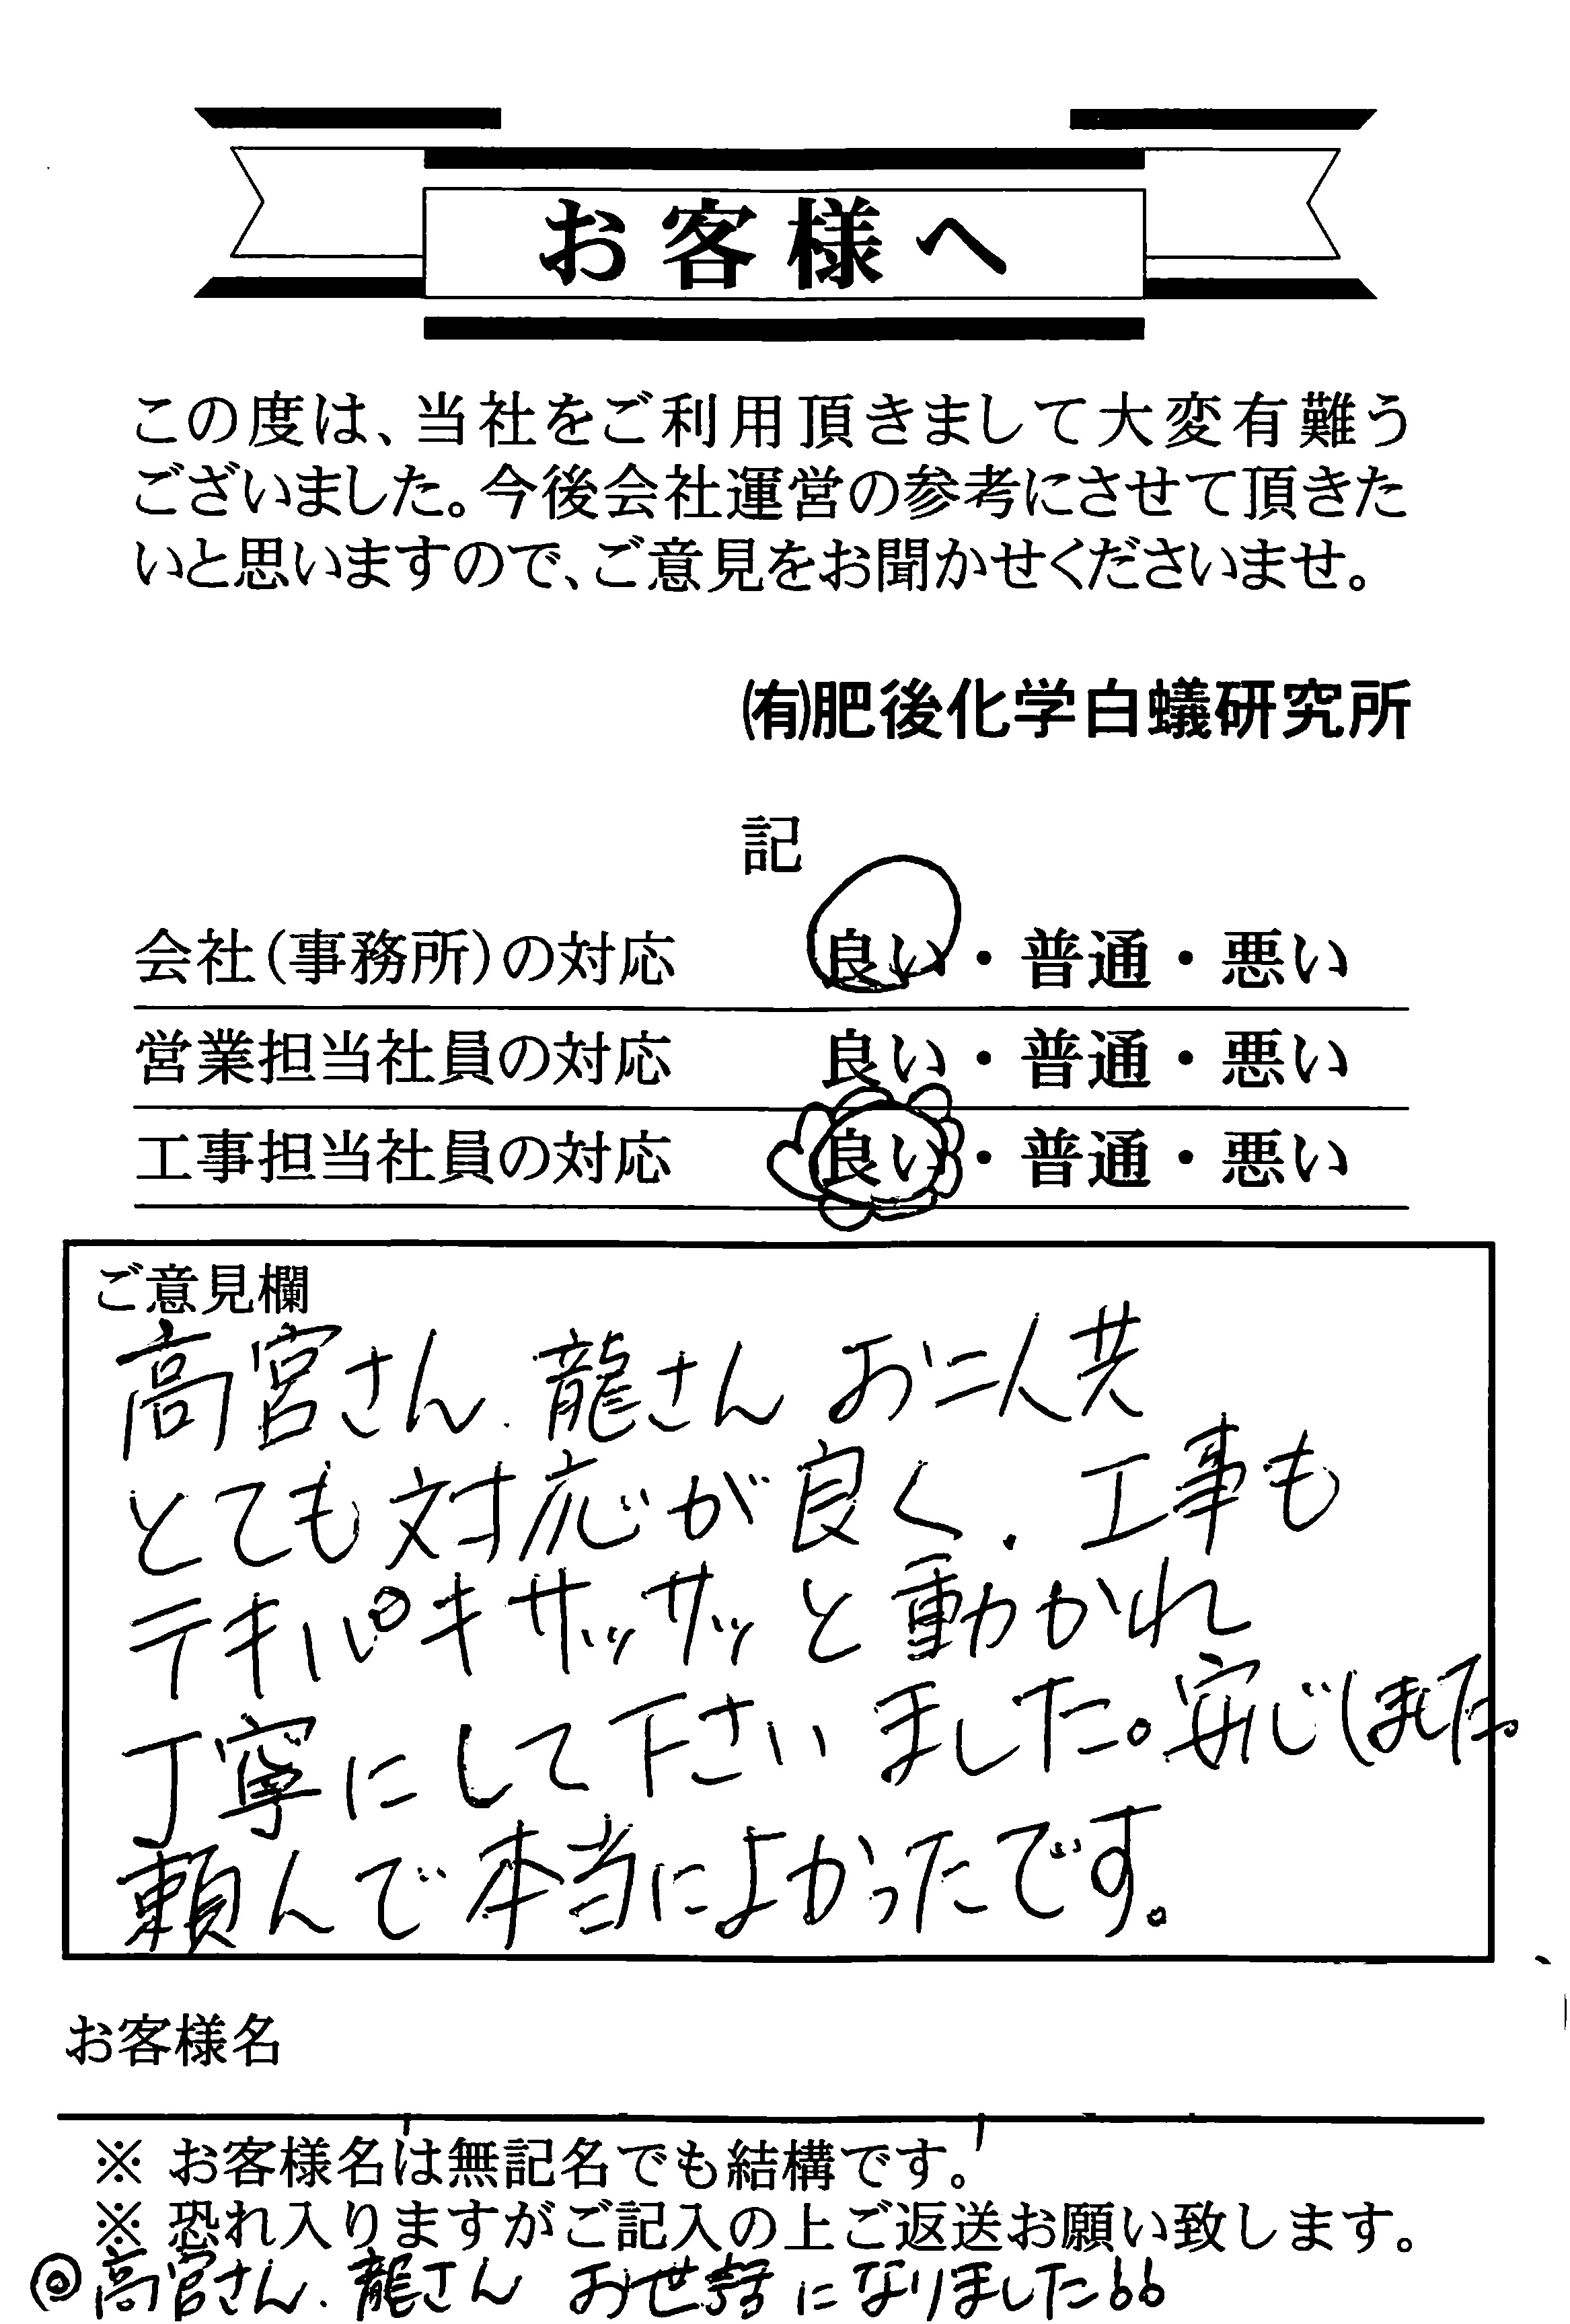 お客様へ
この度は、当社をご利用頂きまして大変有難う
ございました。今後会社運営の参考にさせて頂きた
いと思いますので、ご意見をお聞かせくださいませ。
㈲肥後化学白蟻研究所
記
会社(事務所)の対応 良い・普通・悪い
営業担当社員の対応 良い・普通・悪い
工事担当社員の対応 良い・普通・悪い
ご意見欄
高宮さん、龍さん お二人共
とても対応が良く、工事も
テキパキサッサッと動かれ
丁寧にして下さいました。安心しました。
頼んで本当によかったです。
お客様名
※ お客様名は無記名でも結構です。
※ 恐れ入りますがご記入の上ご返送お願い致します。
◎高宮さん、龍さん お世話になりました